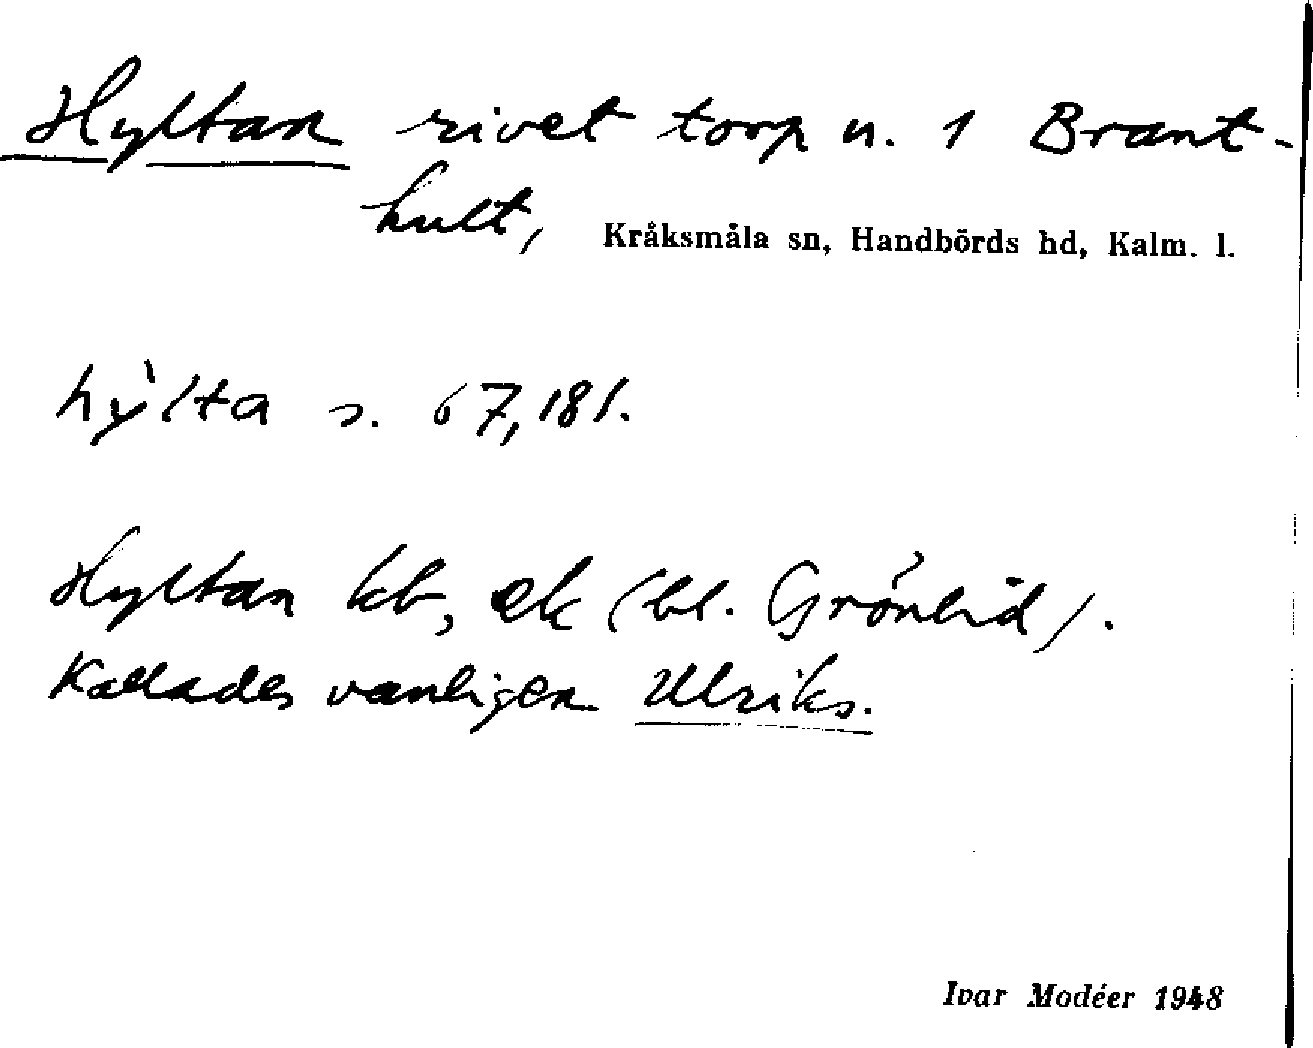 Hyltan rivet torp u. 1 Brant-
hult, Kråksmåla sn, Handbörds hd, Kalm. l.
hy̍lta s. 67, 181.
Hyltan kb, ek (bl. Grönlid).
Kallades vanligen Ulriks.
Ivar Modéer 1948